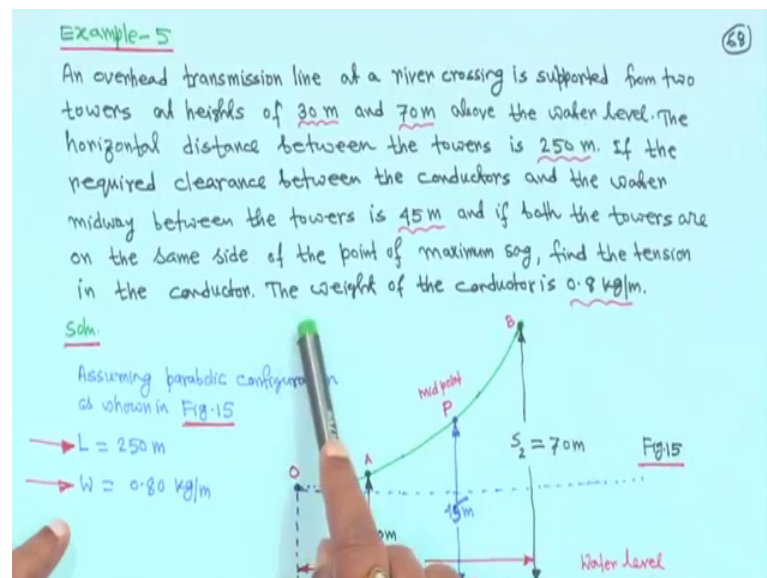 Example-5
68
An overhead transmission line at a river crossing is supported from two
towers at heights of 30 m and 70m above the water level. The
horizontal distance between the towers is 250 m. If the
required clearance between the conductors and the water
midway between the towers is 45 m and if both the towers are
on the same side of the point of maximum sag, find the tension
in the conductor. The weight of the conductor is 0.8 kg/m.
Soln.
Assuming parabolic configuration
as shown in Fig.15
L = 250 m
W = 0.80 kg/m
B
Mid point
P
A
O
S2 = 70m
Fig.15
45m
Water level